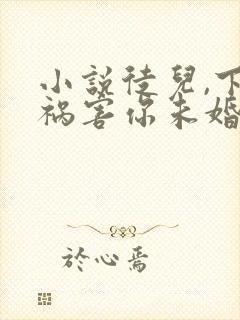 小說徒兒,下
禍害你未婚
於心焉